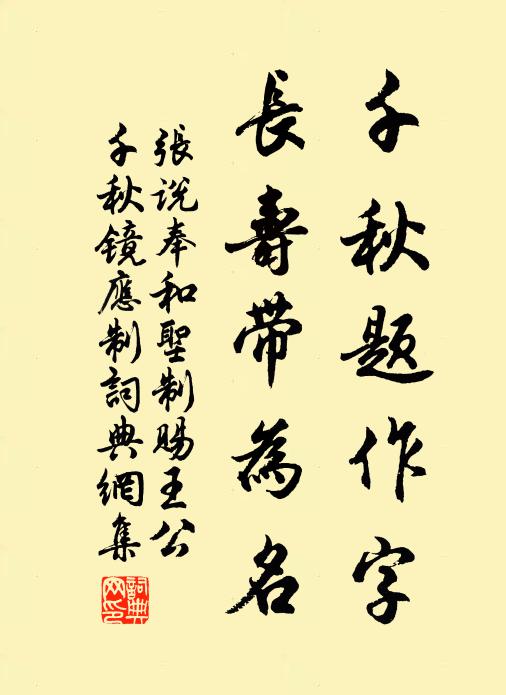 千秋題作字
長壽帶為名
張说奉和聖制賜王公
千秋鏡應制詞典網集
詞典网印